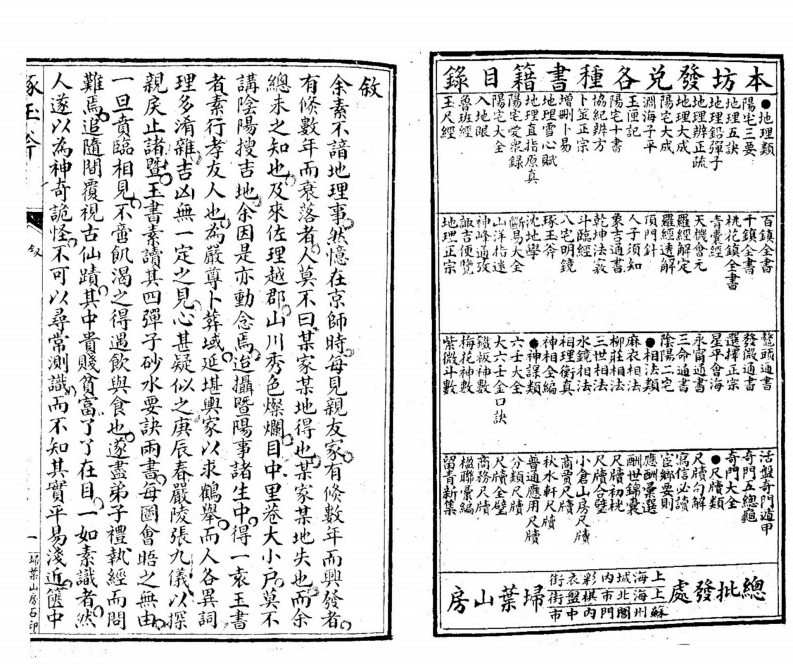 本坊發兌各種書籍目錄
●地理類
陽宅三要
地理五訣
地理鉛彈子
地理辨正疏
地理大成
陽宅大成
淵海子平
玉匣記
陽宅十書
協紀辨方
卜筮正宗
增刪卜易
地理雪心賦
地理直指原真
陽宅愛衆錄
陽宅大全
入地眼
魯班經
玉尺經
百鎮全書
千鎮全書
桃花鎮全書
青囊經
天機會元
羅經解定
羅經透解
頂門針
人子須知
象吉通書
乾坤法竅
斗臨經
八宅明鏡
琢玉斧
沈地學
斷易大全
山洋指迷
神峰通考
諏吉便覽
地理正宗
鰲頭通書
發微通書
選擇正宗
星平會海
永甯通書
三命通書
陰陽二宅
●相法類
麻衣相法
柳莊相法
三世相法
水鏡相法
相理衡真
神相全編
●神課類
六壬大全
大六壬金口訣
鐵板神數
梅花神數
紫微斗數
活盤奇門遁甲
奇門五總龜
奇門大全
●尺牘類
尺牘句解
寫信必讀
宦鄉要則
應酬彙選
酬世錦囊
尺牘初桄
尺牘合璧
小倉山房尺牘
商賈尺牘
秋水軒尺牘
普通應用尺牘
分類尺牘
尺牘全璧
商務尺牘
楹聯彙編
留青新集
總批發處
上海城內彩衣街
上海北市棋盤街
蘇州閶門內中市
掃葉山房
敘
余素不諳地理事然憶在京師時每見親友家有條數年而興發者
有條數年而衰落者人莫不曰某家某地得也某家某地失也而余
總未之知也及來佐理越郡山川秀色燦爛目中里巷大小戶莫不
講陰陽搜吉地余因是亦動念焉迨攝暨陽事諸生中得一袁玉書
者素行孝友人也為嚴尊卜葬域延堪輿家以求鶴舉而人各異詞
理多淆雜吉凶無一定之見心甚疑似之庚辰春嚴陵張九儀以探
親戾止諸暨玉書素讀其四彈子砂水要訣兩書每圖會晤之無由
一旦賁臨相見不啻飢渴之得遇飲與食也遂盡弟子禮執經而問
難焉追隨間覆視古仙蹟其中貴賤貧富了了在目一如素識者然
人遂以為神奇詭怪不可以尋常測識而不知其實平易淺近篋中
琢玉斧
敘
一
掃葉山房石印